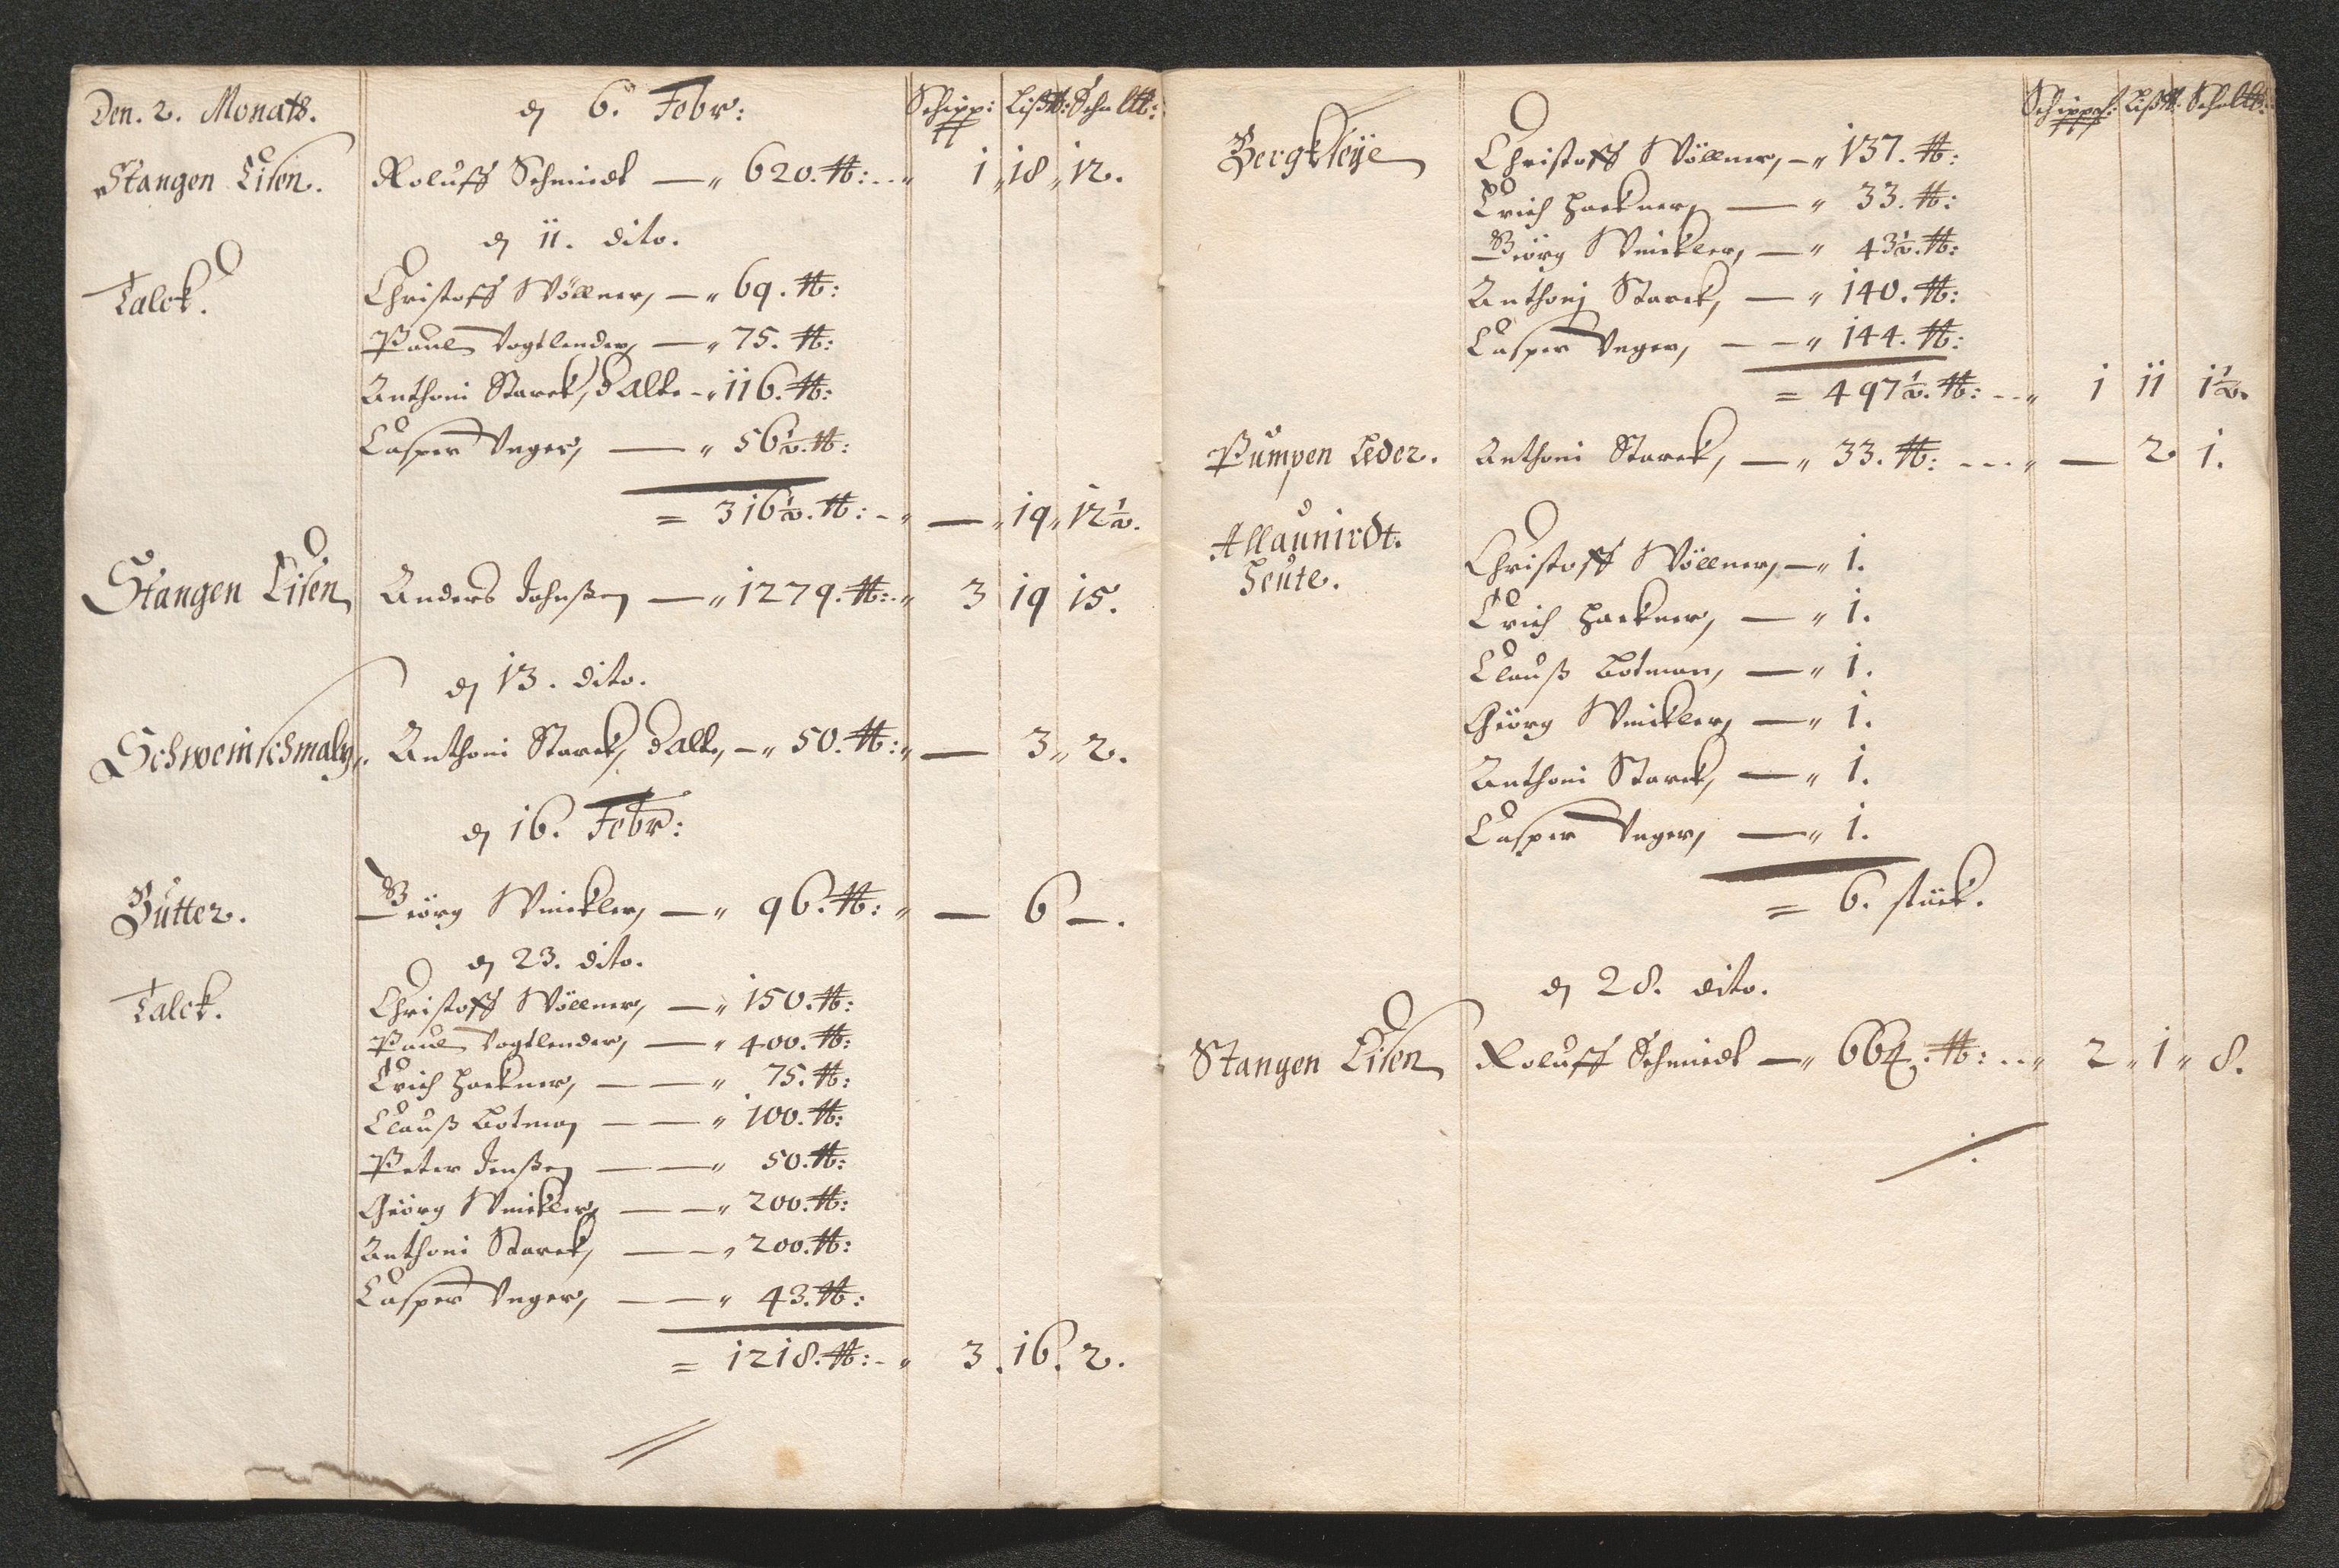 Den. 2. Monats.
d 6. Febr:
Schipp: Liß℔: Schal℔:
Stangen Eisen. Roluff Schmiedt — „ 620. ℔: ... „ 1 „ 18 „ 12.
d 11. dito.
Talck. Christoff Wöllner, — „ 69. ℔:
Paul Vogtlender, — „ 75. ℔:
Anthoni Starck, d Alte — „ 116. ℔:
Casper Unger, — „ 56½. ℔:
= 316½. ℔: - „ — „ 19 „ 12½.
Stangen Eisen Anders Johnßen — „ 1279. ℔: .. „ 3 19 15.
d 13. dito.
Schweinschmaltz. Anthoni Starck, d Alte, — „ 50. ℔: „ — 3 „ 2.
d 16. Febr:
Butter. Giörg Winckler, — „ 96. ℔: „ — 6 —.
d 23. dito.
Talck. Christoff Wöllner, — „ 150. ℔:
Paul Vogtlender, — „ 400. ℔:
Erich Hackner, — — „ 75. ℔:
Clauß Botman — — „ 100. ℔:
Peter Jenßen — — „ 50. ℔:
Giörg Winckler, — — „ 200. ℔:
Anthoni Starck, — — „ 200. ℔:
Casper Unger, — — „ 43. ℔:
= 1218. ℔: - „ 3. 16. 2.
Schipp℔: Liß℔: Schal℔:
Bergkleye Christoff Wöllner, — „ 137. ℔:
Erich Hackner, — „ 33. ℔:
Giörg Winckler, — „ 43½. ℔:
Anthonj Starck, — „ 140. ℔:
Casper Unger, — — „ 144. ℔:
= 497½. ℔: - - „ 1 11 1½.
Pumpen Leder. Anthoni Starck, — „ 33. ℔: - - - „ — 2 1.
Allaunirdt.
Heute. Christoff Wöllner, — „ 1.
Erich Hackner, — „ 1.
Clauß Botman, — „ 1.
Giörg Winckler, — „ 1.
Anthoni Starck, — „ 1.
Casper Unger, — „ 1.
= 6. stück.
d 28. dito.
Stangen Eisen Roluff Schmiedt — „ 664. ℔: ... „ 2 „ 1 „ 8.